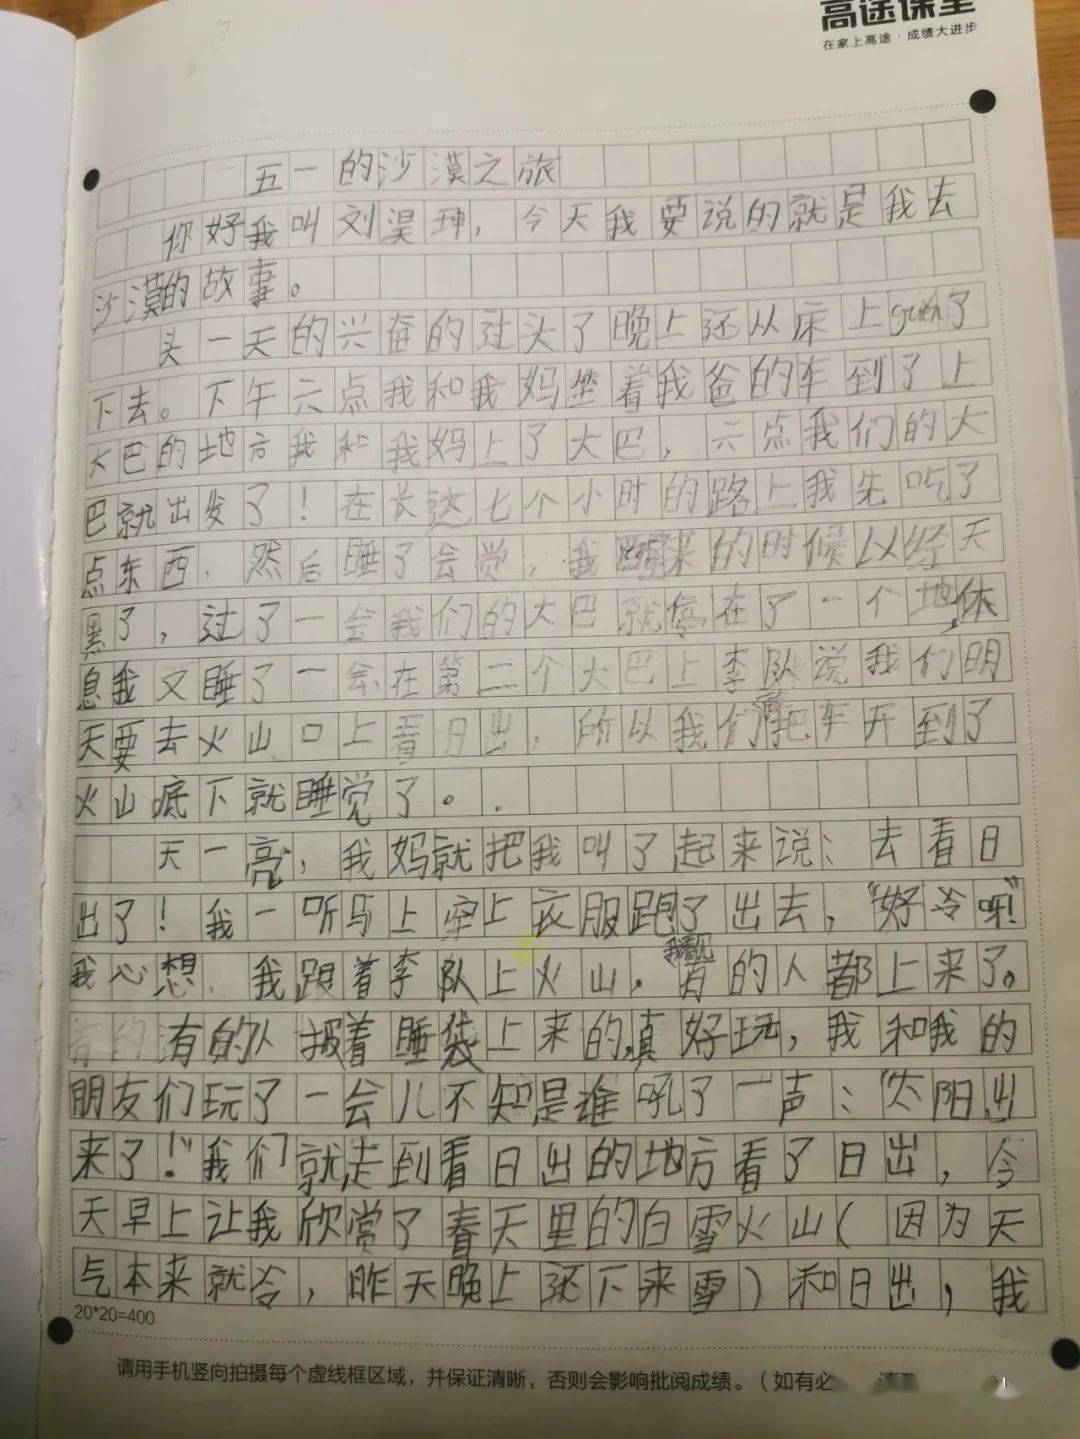 高途课堂
在家上高途·成绩大进步
五一的沙漠之旅
你好我叫刘昊珅，今天我要说的就是我去
沙漠的故事。
头一天的兴奋的过头了晚上还从床上guěn了
下去。下午六点我和我妈坐着我爸的车到了上
大巴的地方我和我妈上了大巴，六点我们的大
巴就出发了！在长达七个小时的路上我先吃了
点东西，然后睡了会觉，我醒来的时候以经天
黑了，过了一会我们的大巴就停在了一个地休
息我又睡了一会在第二个大巴上李队说我们明
天要去火山口上看日出，所以我们把车开到了
火山底下就睡觉了。.
天一亮，我妈就把我叫了起来说：去看日
出了！我一听马上穿上衣服跑了出去，“好冷呀！”
我心想，我跟着李队上火山，我看见有的人都上来了。
有的人披着睡袋上来的，真好玩，我和我的
朋友们玩了一会儿不知是谁吼了一声：“太阳出
来了！”我们就走到看日出的地方看了日出，今
天早上让我欣赏了春天里的白雪火山（因为天
气本来就冷，昨天晚上还下来雪）和日出，我
20*20=400
请用手机竖向拍摄每个虚线框区域，并保证清晰，否则会影响批阅成绩。（如有必